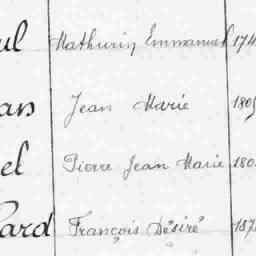 ul Mathurin Emmanuel 174
an Jean Marie 1809
el Pierre Jean Marie 180
ard François Désiré 187